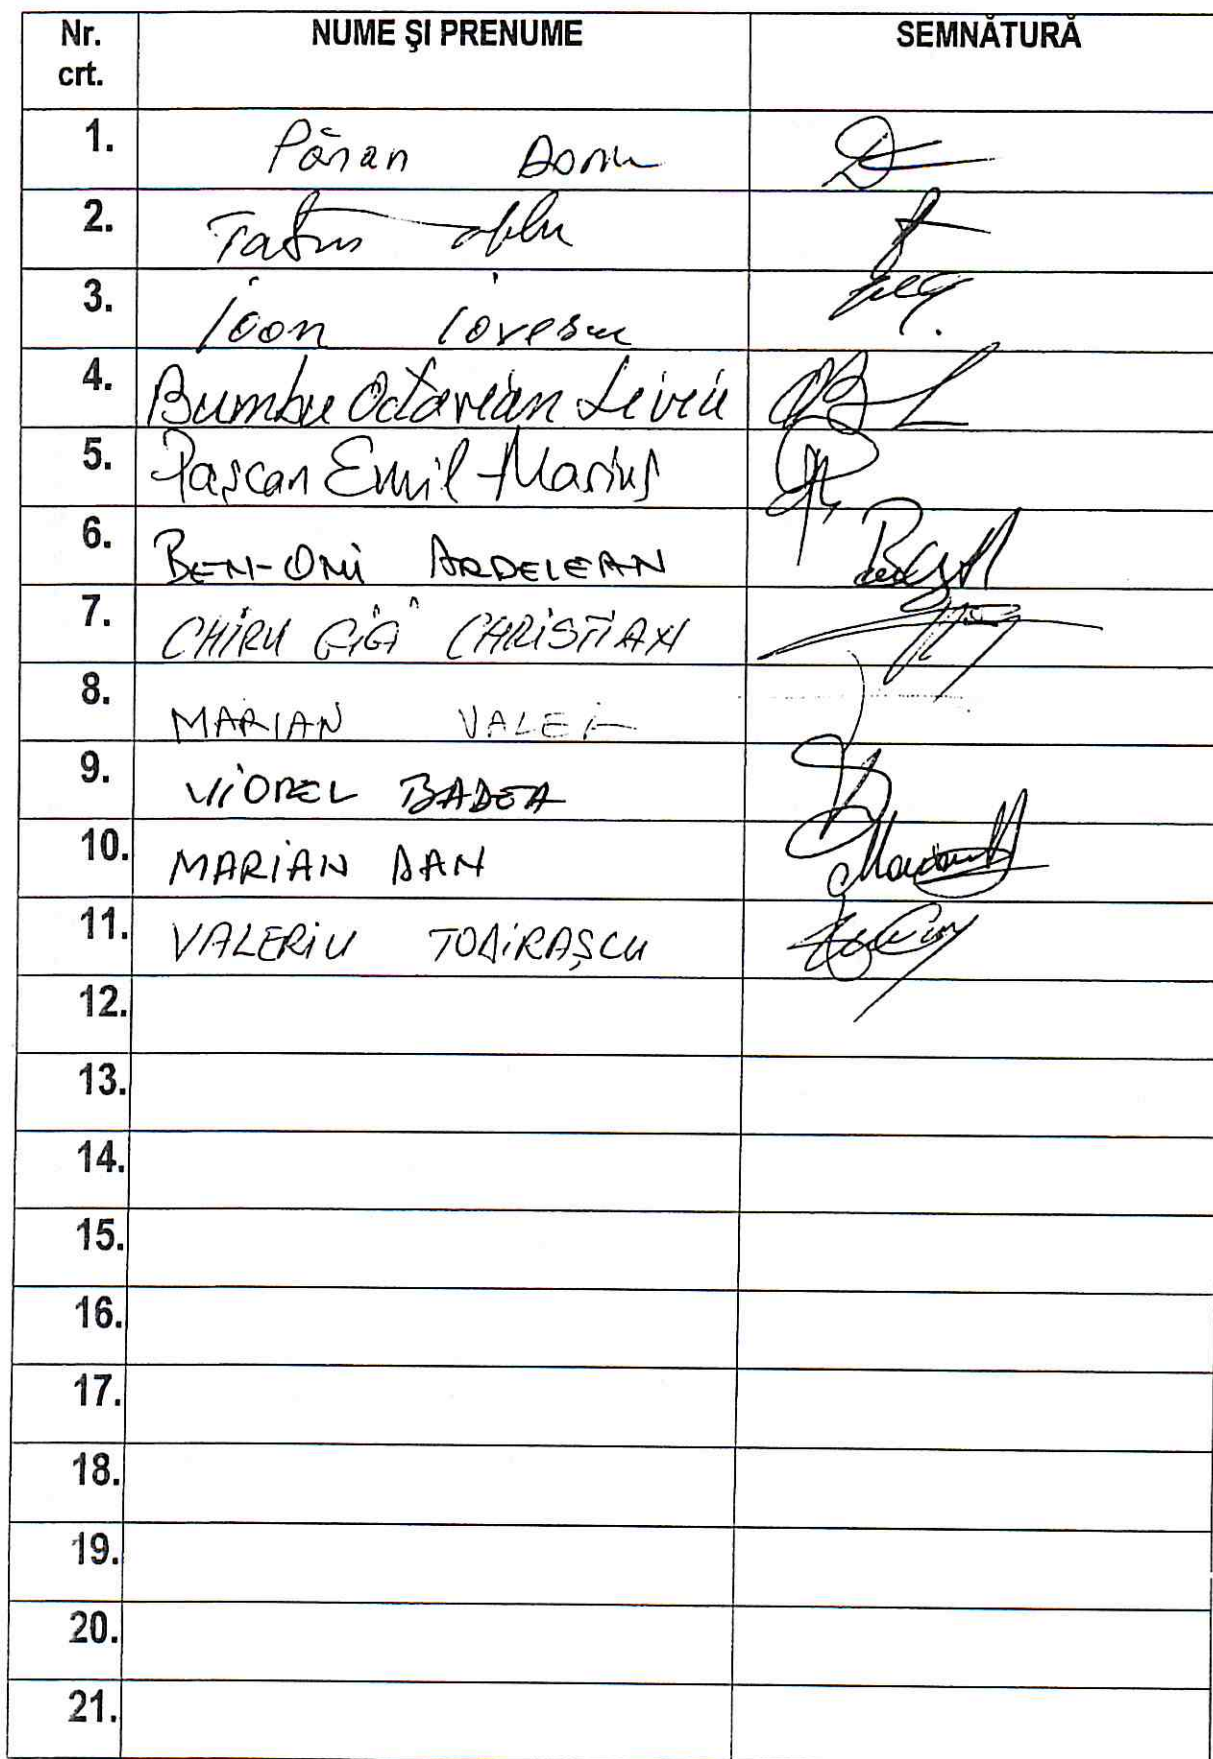 Nr. crt. NUME ŞI PRENUME SEMNĂTURĂ
1. Păran Dorin
2.
3. Ioon Iovescu
4. Bumbu Octavian Liviu
5. Paşcan Emil-Marius
6. BEN-ONI ARDELEAN
7. CHIRU GIGI CHRISTIAN
8. MARIAN VALER
9. VIOREL BADEA
10. MARIAN DAN
11. VALERIU TODIRAŞCU
12.
13.
14.
15.
16.
17.
18.
19.
20.
21.